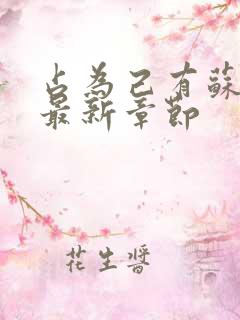 占為己有蘇
最新章節
花生醬